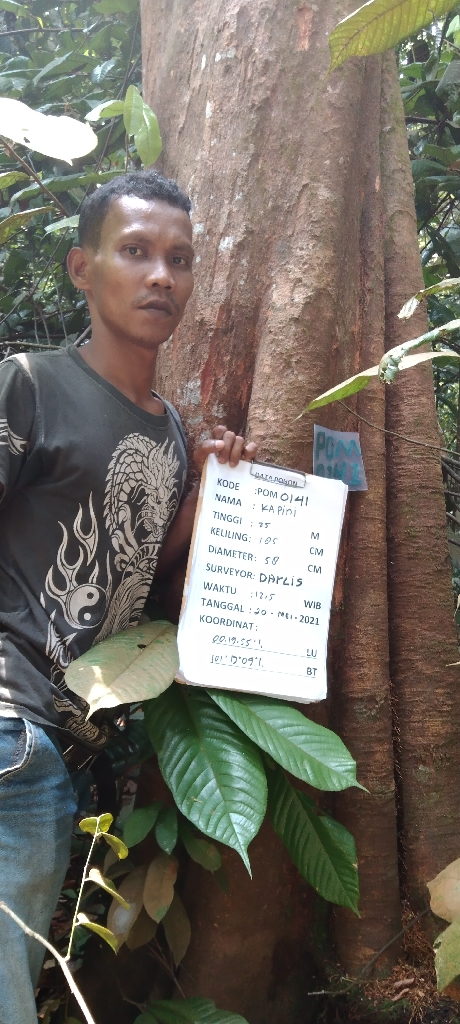 DATA POHON
KODE :POM 0141
NAMA : KAPINI
TINGGI : 25 M
KELILING: 185 CM
DIAMETER: 58 CM
SURVEYOR: DARLIS
WAKTU :1215 WIB
TANGGAL :20 - MEI - 2021
KOORDINAT:
00.19.55"1. LU
101°17'09"1. BT
POM
0141